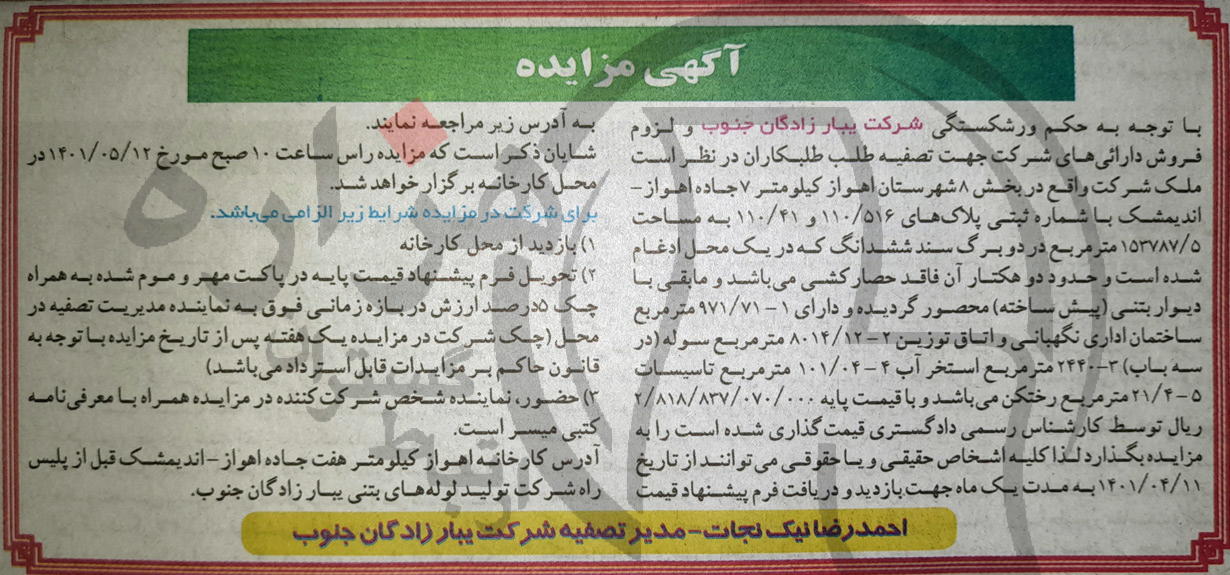 آگهی مزایده
با توجه به حکم ورشکستگی شرکت یبار زادگان جنوب و لزوم
فروش دارائی‌های شرکت جهت تصفیه طلب طلبکاران در نظر است
ملک شرکت واقع در بخش ۸ شهرستان اهواز کیلومتر ۷ جاده اهواز-
اندیمشک با شماره ثبتی پلاک‌های ۱۱۰/۵۱۶ و ۱۱۰/۴۱ به مساحت
۱۵۳۷۸۷/۵ مترمربع در دو برگ سند ششدانگ که در یک محل ادغام
شده است و حدود دو هکتار آن فاقد حصارکشی می‌باشد و مابقی با
دیوار بتنی (پیش ساخته) محصور گردیده و دارای ۱- ۹۷۱/۷۱ مترمربع
ساختمان اداری نگهبانی و اتاق توزین ۲- ۸۰۱۴/۱۲ مترمربع سوله (در
سه باب) ۳-۲۴۴۰ مترمربع استخر آب ۴- ۱۰۱/۰۴ مترمربع تاسیسات
۵- ۲۱/۴ مترمربع رختکن می‌باشد و با قیمت پایه ۲/۸۱۸/۸۳۷/۰۷۰/۰۰۰
ریال توسط کارشناس رسمی دادگستری قیمت گذاری شده است را به
مزایده بگذارد لذا کلیه اشخاص حقیقی و یا حقوقی می‌توانند از تاریخ
۱۴۰۱/۰۴/۱۱ به مدت یک ماه جهت بازدید و دریافت فرم پیشنهاد قیمت
به آدرس زیر مراجعه نمایند.
شایان ذکر است که مزایده راس ساعت ۱۰ صبح مورخ ۱۴۰۱/۰۵/۱۲ در
محل کارخانه برگزار خواهد شد.
برای شرکت در مزایده شرایط زیر الزامی می‌باشد.
۱) بازدید از محل کارخانه
۲) تحویل فرم پیشنهاد قیمت پایه در پاکت مهر و موم شده به همراه
چک ۵درصد ارزش در بازه زمانی فوق به نماینده مدیریت تصفیه در
محل (چک شرکت در مزایده یک هفته پس از تاریخ مزایده با توجه به
قانون حاکم بر مزایدات قابل استرداد می‌باشد)
۳) حضور، نماینده شخص شرکت کننده در مزایده همراه با معرفی نامه
کتبی میسر است.
آدرس کارخانه اهواز کیلومتر هفت جاده اهواز-اندیمشک قبل از پلیس
راه شرکت تولید لوله‌های بتنی یبار زادگان جنوب.
احمدرضا نیک نجات - مدیر تصفیه شرکت یبار زادگان جنوب
هزاره